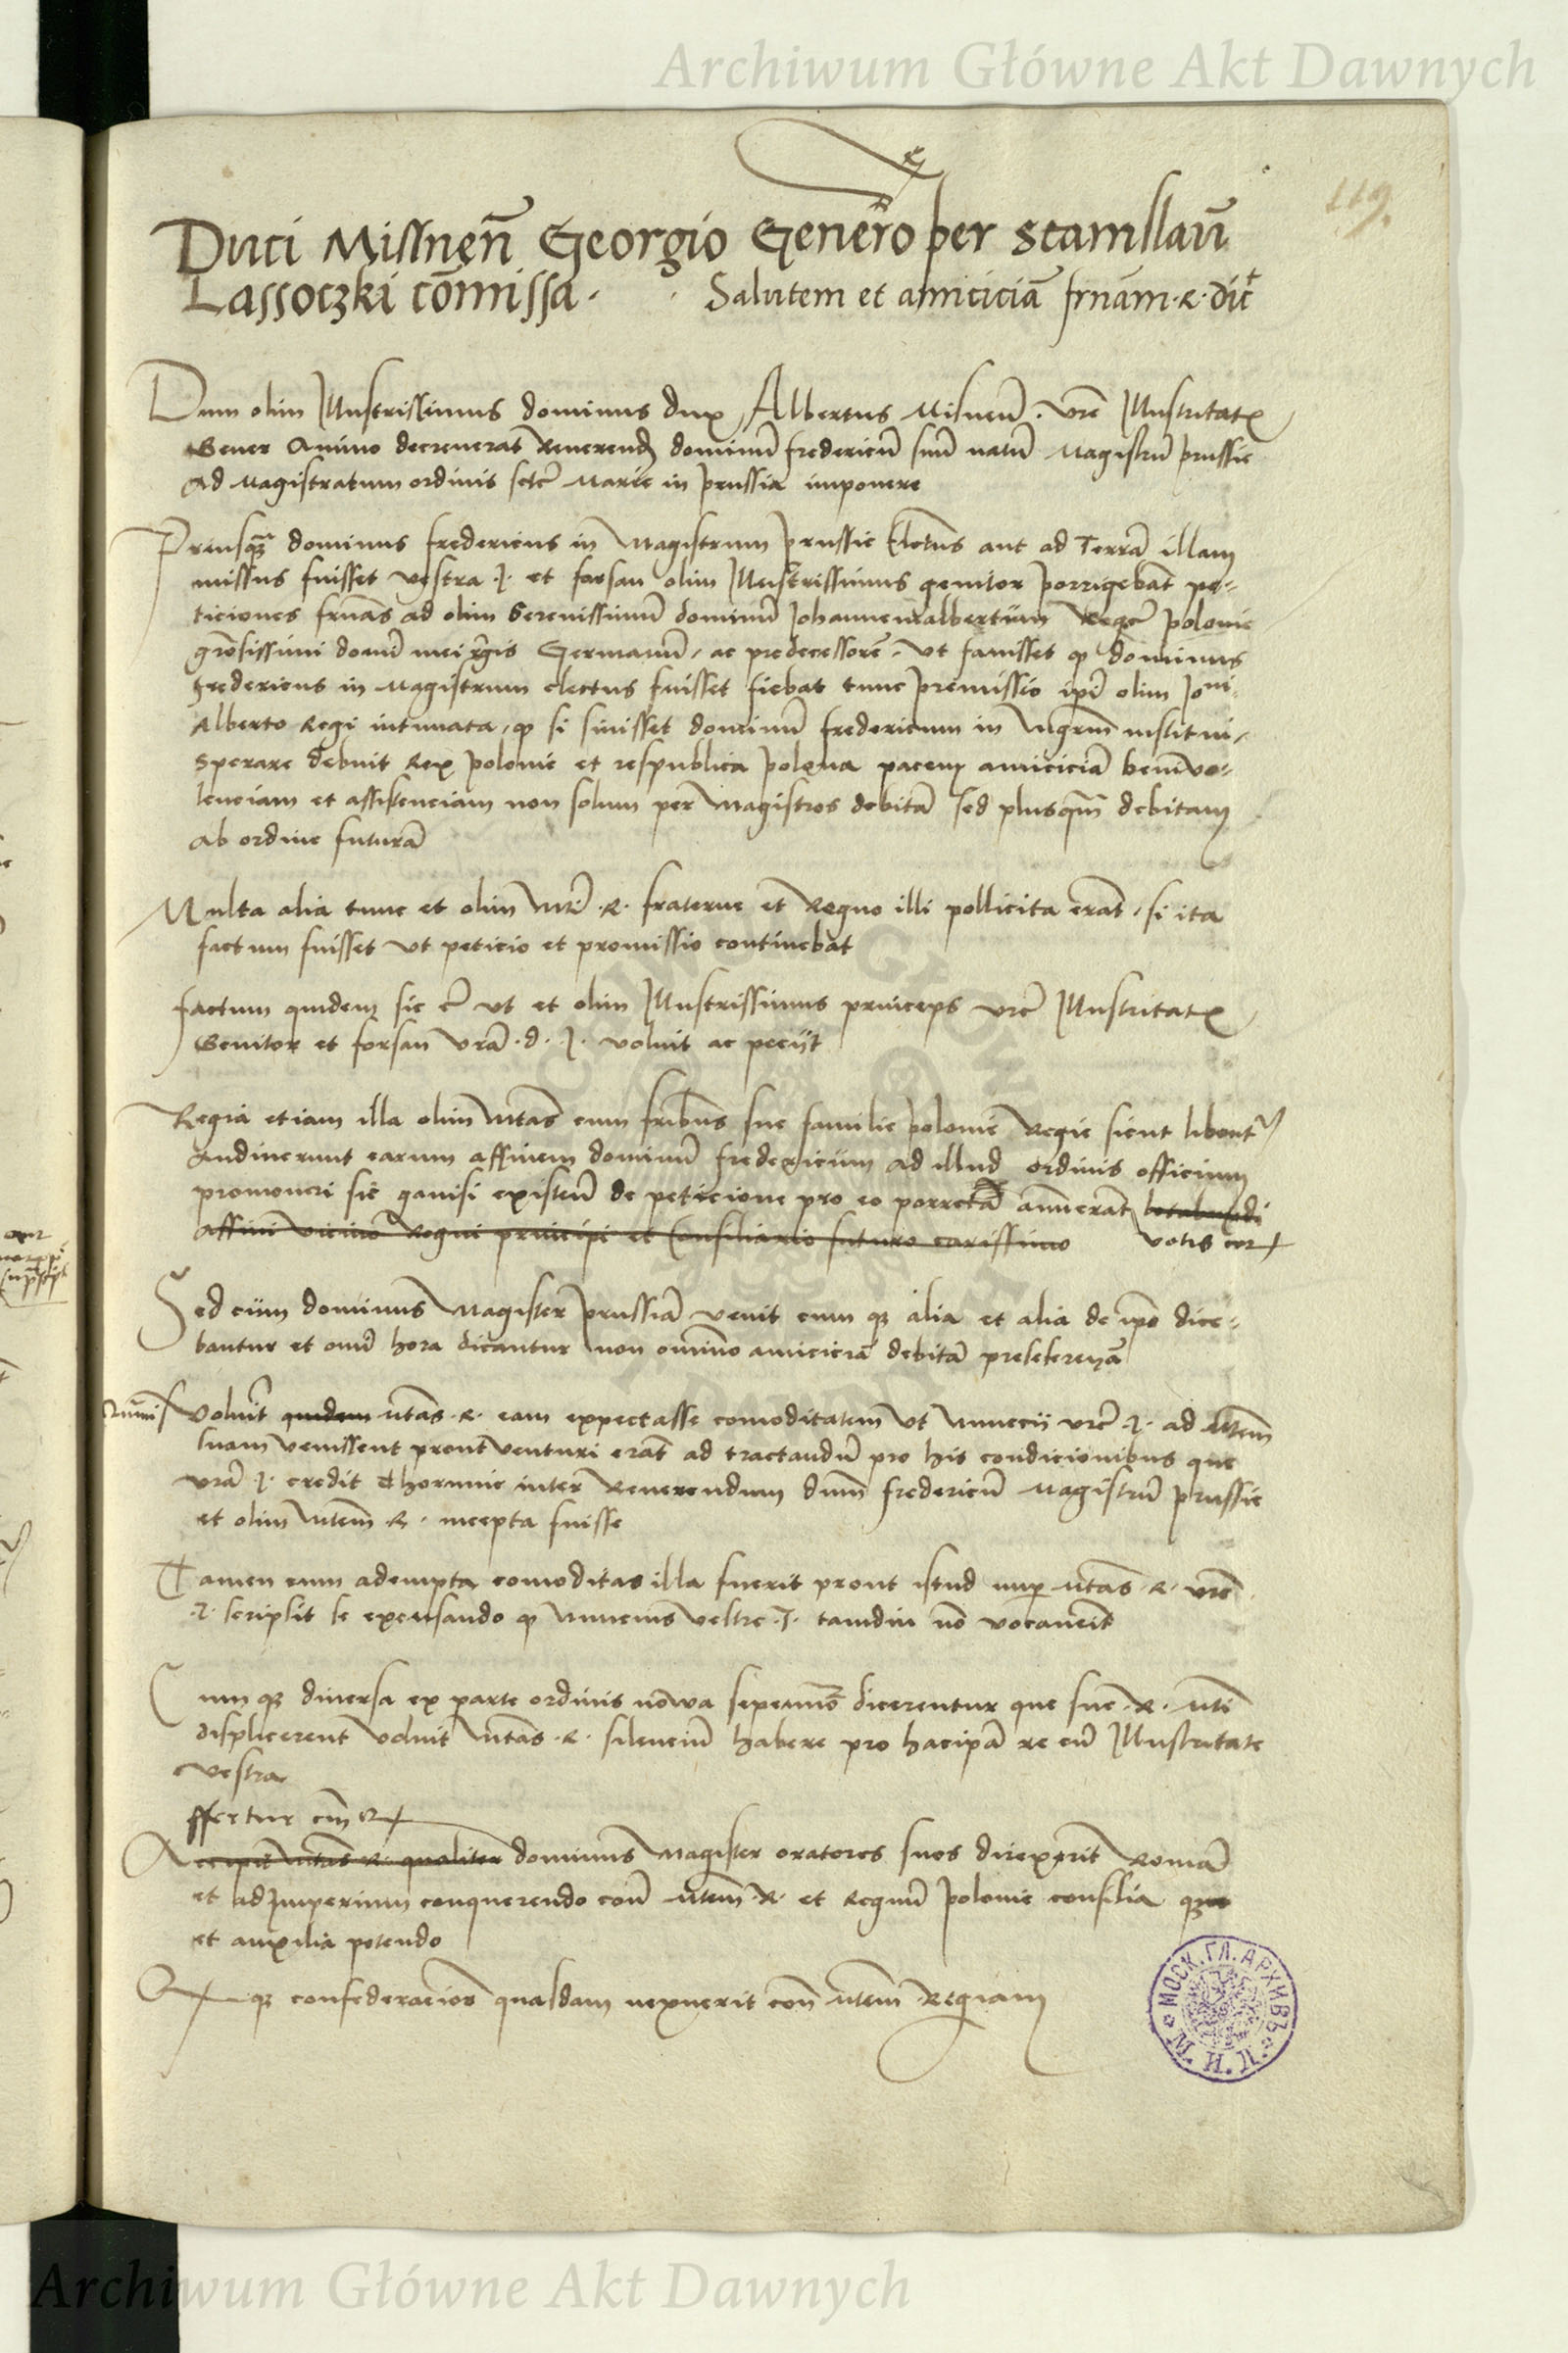 Archiwum Główne Akt Dawnych
119.
Duci Missnen̄ Georgio Genero per Stanislau᷈
Lassoczki com̄issa . Salutem et amiciciā frnām . R . dic̄t
Dum olim Illustrissimus dominus dux Albertus Misneñ . vrē Illustritatꝭ
Gener Animo decreverat Reverend dominū fredericū suū natū Magistrū prussie
Ad Magistratum ordinis sctē Marie in prussia imponere
Priusqꝫ dominus fredericus in Magistrum prussie Electus aut ad Terrā illam
missus fuisset vestra . I . et forsan olim Illustrissimus genitor porrigebāt pe-
ticiones frnās ad olim Serenissimū dominū Johannemalbertum Regē polonie
grōsissimi domī mei rgis Germanū, ac predecessorē . ut favisset qꝫ dominus
fredericus in Magistrum electus fuisset fiebat tunc premissio ipī olim Joni-
Alberto Regi intimata, qꝫ si sivisset dominū fredericum in Mgrm institui,
Sperare debuit Rex polonie et respublica polona pacem amiciciā benivo-
lenciam et assistenciam non solum per Magistros debitā sed plusqꝫ debitam
Ab ordine futurā
Multa alia tunc et olim Mti . R . fraterne et Regno illi pollicita erāt, si ita
factum fuisset ut peticio et promissio continebat
factum quidem sic ē ut et olim Illustrissimus princeps vrē Illustritatꝭ
Genitor et forsan vrā . d . I . voluit ac peciit
Regia etiam illa olim Mtas cum fribus sue familie polonie Regie sicut libentr
Audiverunt earum affinem dominū fredericum ad illud ordinis officium
promoveri sic gavisi existeñ de peticione pro eo porrectā annuerāt
affini vicino Regni principi et Consiliario futuro carissimo votis cor
Sed cum dominus Magister prussiā venit cum qꝫ alia et alia de ipso dice-
bantur et omī hora dicantur non omīno amiciciā debitā preseferenā
Voluit quidem Mtas . R . eam expectasse comoditatem ut Nuncii vrē . I . ad Mtem
suam venissent prout venturi erāt ad tractandū pro his condicionibus que
vrā . I . credit Thorunie inter Reverendum dnm̄ fredericū Magistrū prussie
et olim Mtem . R . incepta fuisse
Tamen cum adempta comoditas illa fuerit prout istud nup Mtas . R . vrē
. I . scripsit se excusando qꝫ Nuncius vestre . I . tamdiu nō vocaverit
Cum qꝫ diversa ex parte ordinis nowa sepenūo dicerentur que sue . R . Mti
displicerent Voluit Mtas . R . silenciū habere pro hacipā re cū Illustritate
Vestra
ffertur em̄
Accepit Mtas . R . qualiter dominus Magister oratores suos direxerit Romā
et ad Imperium conquerendo con̄ Mtem . R . et Regnū polonie consilia
et auxilia petendo
qꝫ confederacioēs quasdam nexuerit con̄ Mtem Regiam
МОСК.ГЛ.АРХИВЪ М.И.Д.
Archiwum Główne Akt Dawnych